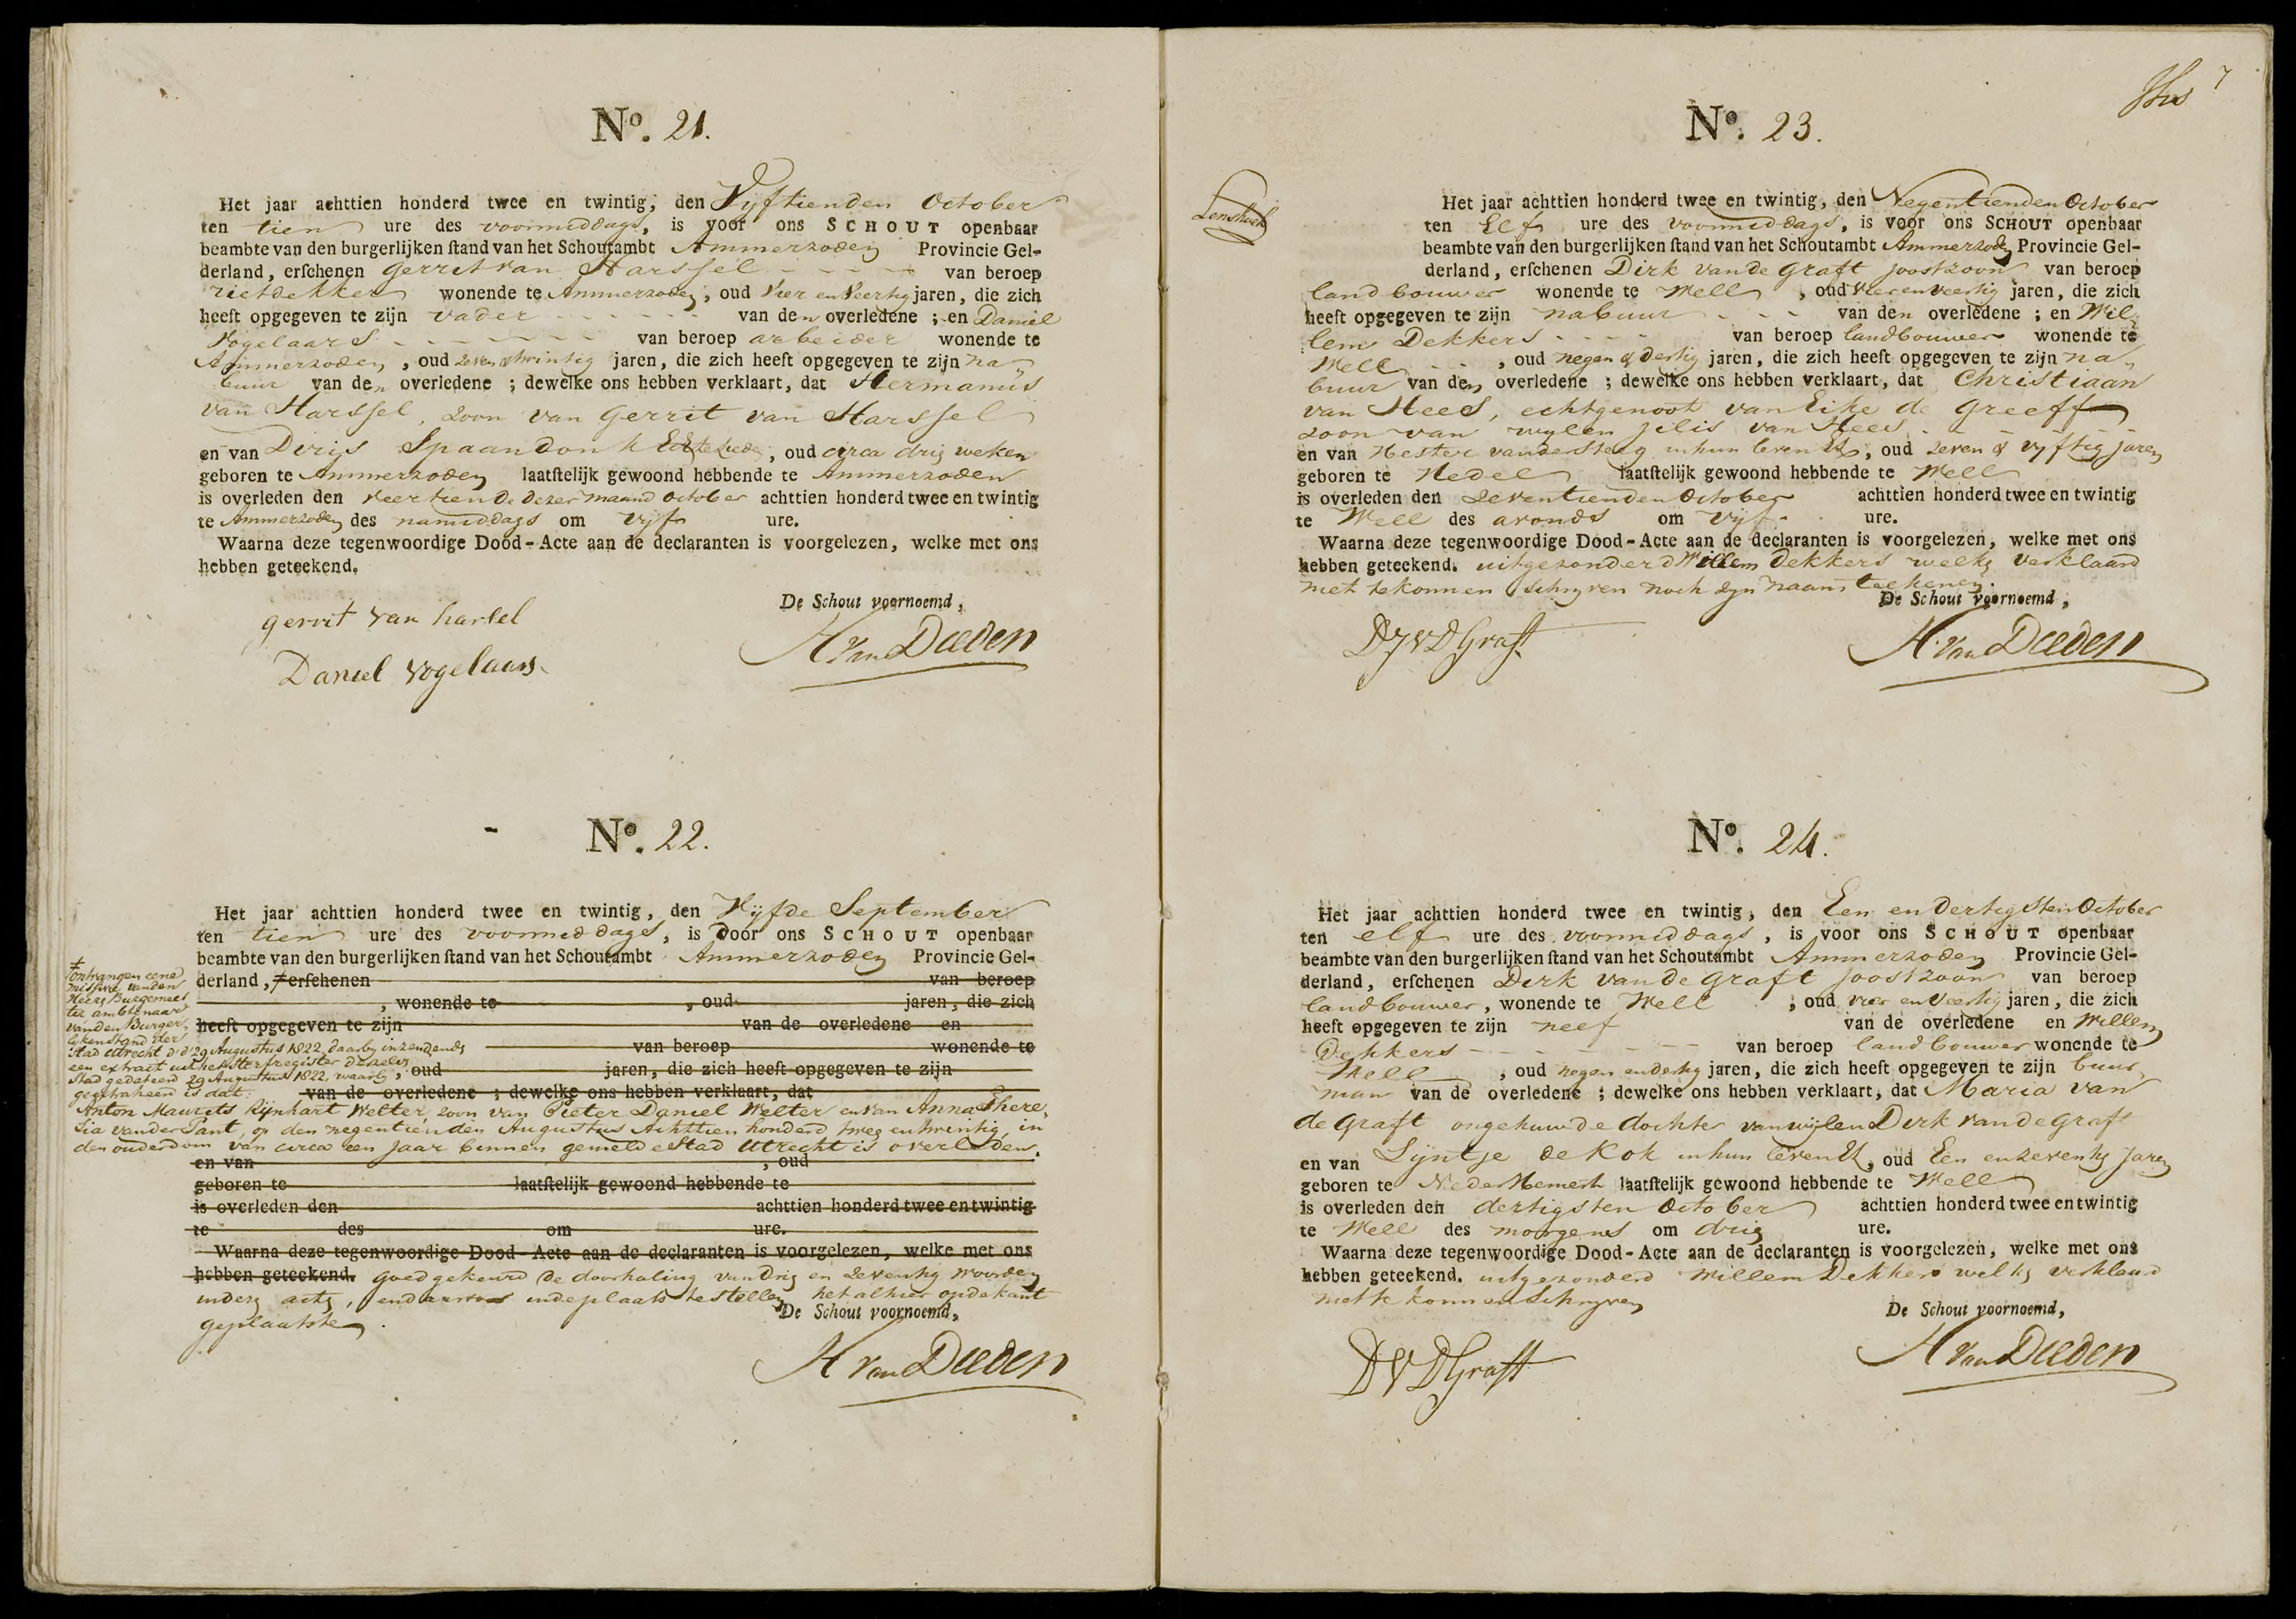 No. 21.
Het jaar achttien honderd twee en twintig, den Vyftienden October
ten tien ure des voormiddags, is voor ons SCHOUT openbaar
beambte van den burgerlijken ſtand van het Schoutambt Ammerzoden Provincie Gel-
derland, erſchenen Gerrit van Harssel van beroep
rietdekker wonende te Ammerzoden, oud Vier en Veertig jaren, die zich
heeft opgegeven te zijn vader van den overledene ; en Daniel
Vogelaars van beroep arbeider wonende te
Ammerzoden, oud zeven & twintig jaren, die zich heeft opgegeven te zijn na
buur van den overledene ; dewelke ons hebben verklaart, dat Hermanus
van Harssel, zoon van Gerrit van Harssel
en van Derijs Spaandonk Echtelieden, oud circa drij weken
geboren te Ammerzoden laatſtelijk gewoond hebbende te Ammerzoden
is overleden den veertiende dezer maand october achttien honderd twee en twintig
te Ammerzoden des namiddags om vijf ure.
Waarna deze tegenwoordige Dood-Acte aan de declaranten is voorgelezen, welke met ons
hebben geteekend.
De Schout voornoemd,
gerrit van harsel
H Van Deeden
Daniel Vogelaars
No. 22.
Het jaar achttien honderd twee en twintig, den Vijfde September
ten tien ure des voormiddags, is door ons SCHOUT openbaar
beambte van den burgerlijken ſtand van het Schoutambt Ammerzoden Provincie Gel-
derland, erſchenen van beroep
, wonende te , oud jaren, die zich
heeft opgegeven te zijn van de overledene en
van beroep wonende te
, oud jaren, die zich heeft opgegeven te zijn
van de overledene ; dewelke ons hebben verklaart, dat
ontvangen eene
missive van den
Heere Burgemees
ter ambtenaar
van den Burger
lyken Stand der
Stad Utrecht d.d. 29 Augustus 1822, daarby inzendende
een extract uit het sterfregister derzelver
Stad gedateerd 29 Augustus 1822, waarby
geextraheerd is dat
Anton Maurits Rijnhart Welter, zoon van Pieter Daniel Welter en van Anna There,
sia vander Pant, op den negentienden Augustus Achttien honderd twee en twintig in
den ouderdom van circa een jaar binnen gemelde Stad Utrecht is overleden.
en van , oud
geboren te laatſtelijk gewoond hebbende te
is overleden den achttien honderd twee en twintig
te des om ure.
Waarna deze tegenwoordige Dood-Acte aan de declaranten is voorgelezen, welke met ons
hebben geteekend. goedgekeurd de doorhaling van drij en zeventig woorden
in deze acte, en daarvoor in de plaats te stellen het alhier op de kant
De Schout voornoemd,
geplaatste
H Van Deeden
7
No. 23.
Het jaar achttien honderd twee en twintig, den Negentienden October
ten Elf ure des voormiddags, is voor ons SCHOUT openbaar
beambte van den burgerlijken ſtand van het Schoutambt Ammerzoden Provincie Gel-
derland, erſchenen Dirk van de Graft Joostzoon van beroep
landbouwer wonende te Well, oud vier en veertig jaren, die zich
heeft opgegeven te zijn nabuur van den overledene ; en Wil
lem Dekkers van beroep landbouwer wonende te
Well, oud negen & dertig jaren, die zich heeft opgegeven te zijn na
buur van den overledene ; dewelke ons hebben verklaart, dat Christiaan
van Hees, echtgenoot van Eike de Greeff
zoon van wylen Jilis van Hees
en van Hester vander Steeg in hun leven El, oud zeven & vyftig jaren
geboren te Hedel laatſtelijk gewoond hebbende te Well
is overleden den zeventienden October achttien honderd twee en twintig
te Well des avonds om vijf ure.
Waarna deze tegenwoordige Dood-Acte aan de declaranten is voorgelezen, welke met ons
hebben geteekend. uitgezonderd Willem Dekkers welke verklaard
niet te konnen schryven noch zyn naam teekenen.
De Schout voornoemd,
DJVDGraft
H. Van Deeden
No. 24.
Het jaar achttien honderd twee en twintig, den Een en Dertigsten October
ten elf ure des voormiddags, is voor ons SCHOUT openbaar
beambte van den burgerlijken ſtand van het Schoutambt Ammerzoden Provincie Gel-
derland, erſchenen Dirk van de Graft Joostzoon van beroep
landbouwer, wonende te Well, oud vier en veertig jaren, die zich
heeft opgegeven te zijn neef van de overledene en Willem
Dekkers van beroep landbouwer wonende te
Well, oud negen en dertig jaren, die zich heeft opgegeven te zijn buur
man van de overledene ; dewelke ons hebben verklaart, dat Maria van
de Graft ongehuwde dochter van wijlen Dirk van de Graft
en van Lijntje de Kok in hun leven El, oud Een en zeventig Jaren
geboren te NederHemert laatſtelijk gewoond hebbende te Well
is overleden den dertigsten October achttien honderd twee en twintig
te Well des morgens om drij ure.
Waarna deze tegenwoordige Dood-Acte aan de declaranten is voorgelezen, welke met ons
hebben geteekend. uitgezonderd Willem Dekkers welke verklaard
niet te konnen Schryven
De Schout voornoemd,
DVDGraft
H Van Deeden